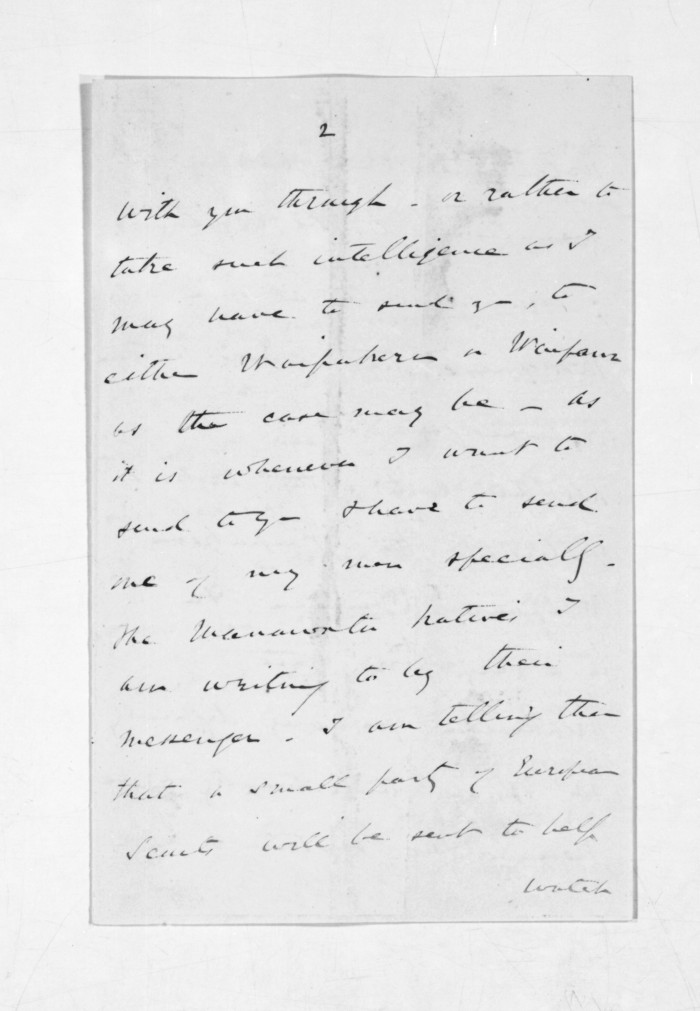 2
with you through - or rather to
take such intelligence as I
may have to send you, to
either Waipukura or Waipawa
as the case may be - as
it is whenever I want to
send to you I have to send
one of my men specially -
the Manawatu Natives I
am writing to by their
messenger - I am telling them
that a small party of European
Scouts will be sent to help
watch